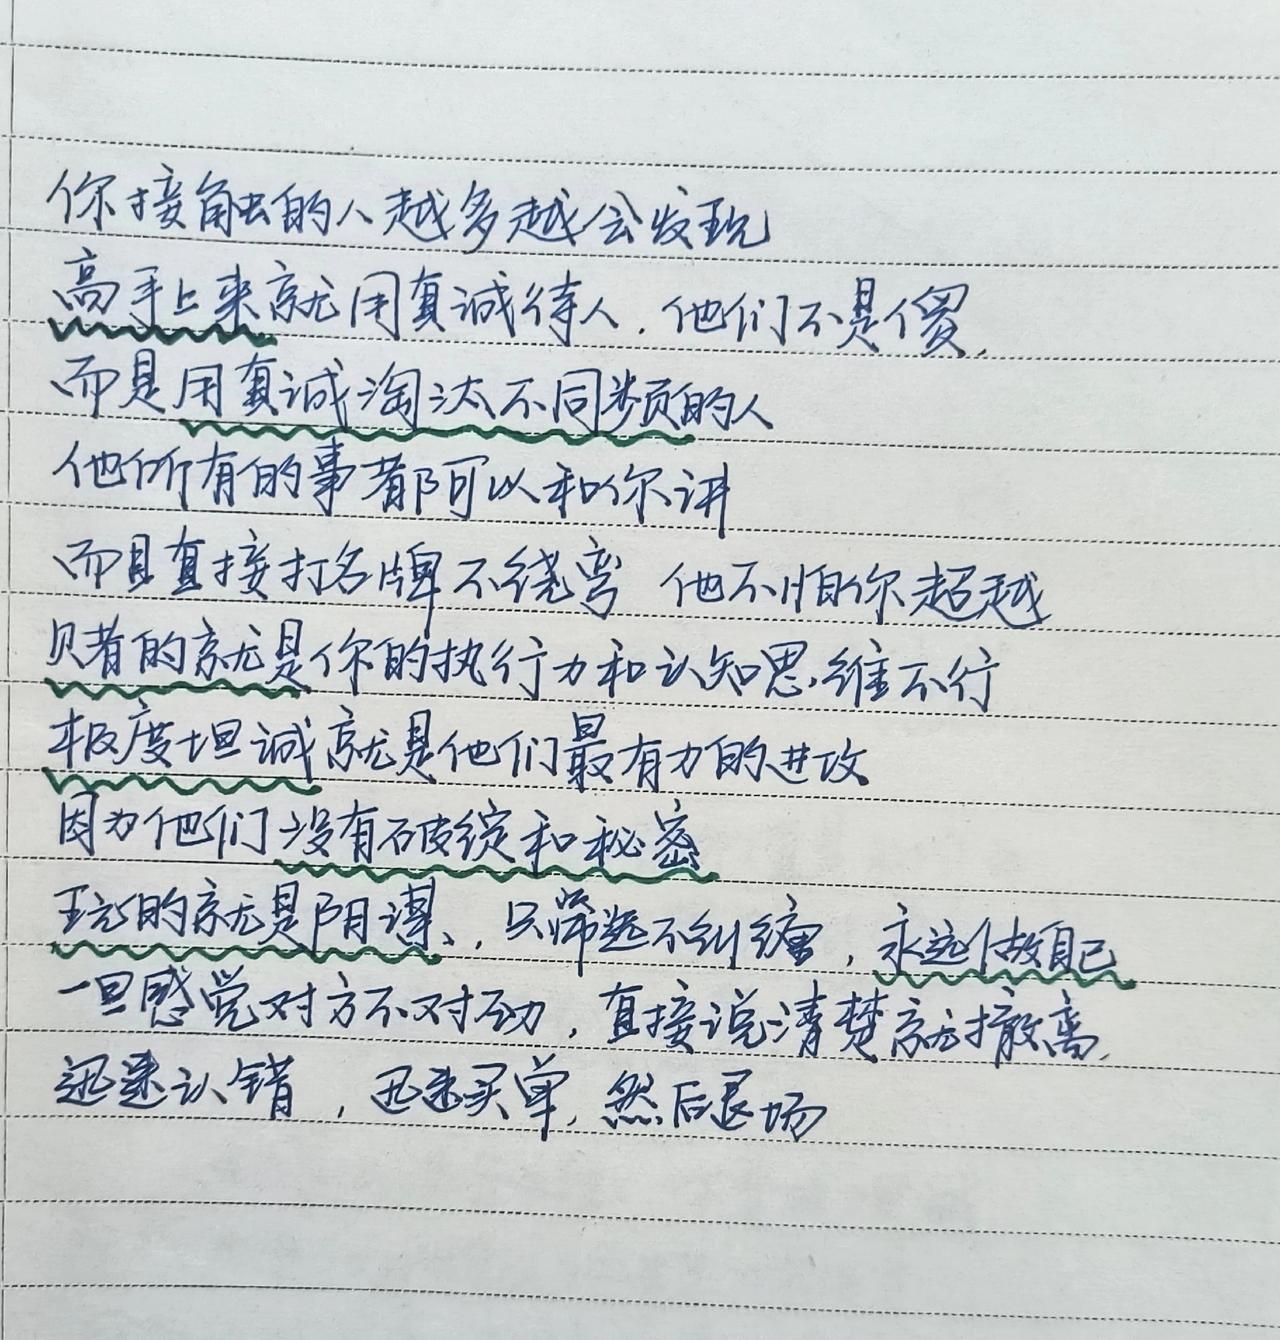 你接触的人越多越会发现
高手上来就用真诚待人，他们不是傻，
而是用真诚淘汰不同频的人
他所有的事都可以和你讲
而且直接打名牌不绕弯 他不怕你超越
贝者的就是你的执行力和认知思维不行
极度坦诚就是他们最有力的进攻
因为他们没有破绽和秘密
玩的就是阳谋、，只筛选不纠缠，永远做自己
一旦感觉对方不对劲，直接说清楚就撤离，
迅速认错，迅速买单，然后退场